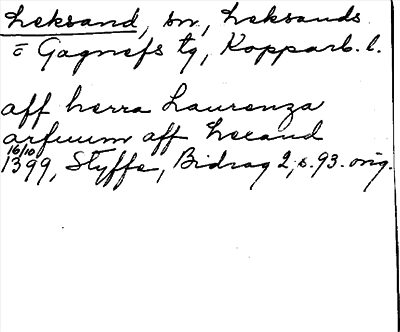 Leksand, sn, Leksands
o Gagnefs tg, Kopparb. l.
aff herra Laurenza
arfuum aff Lecand
16/10
1399, Styffe, Bidrag 2, s. 93. orig.